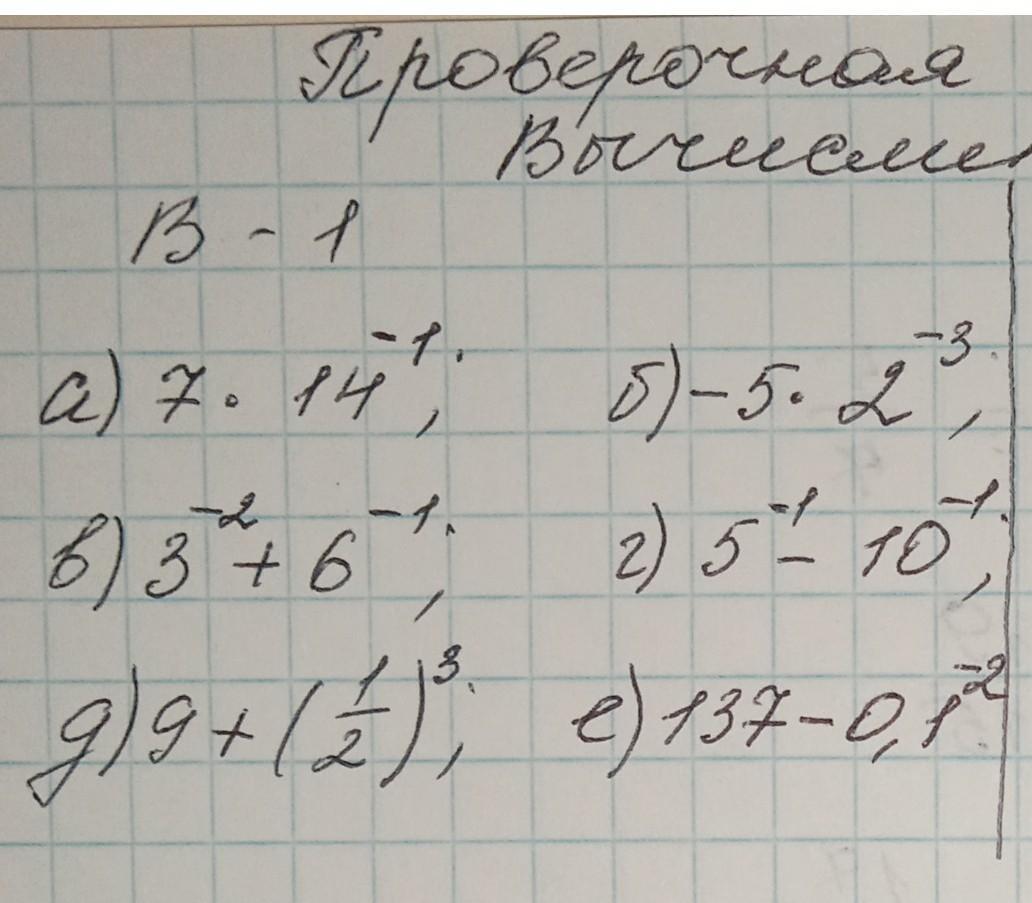 Проверочная
Вычисли
В - 1
а) 7 · 14⁻¹; б) -5 · 2⁻³;
в) 3⁻² + 6⁻¹; г) 5⁻¹ - 10⁻¹;
д) 9 + (1/2)³; е) 137 - 0,1⁻²